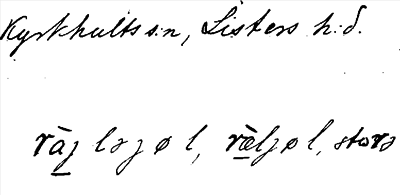 Kyrkhults s:n, Listers h:d.
ràȝləȝøl, rælȝøl, stora